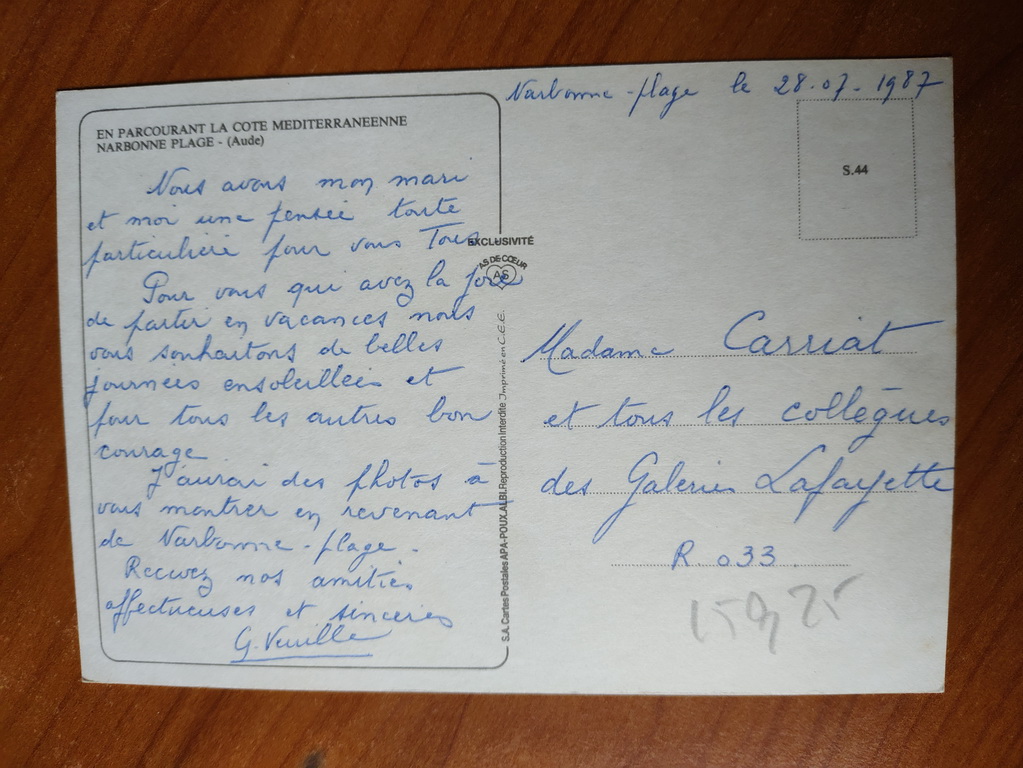 Narbonne-plage le 28.07.1987
EN PARCOURANT LA COTE MEDITERRANEENNE
NARBONNE PLAGE - (Aude)
Nous avons mon mari
et moi une pensée toute
particulière pour vous Tous
Pour vous qui avez la joie
de partir en vacances nous
vous souhaitons de belles
journées ensoleillées et
pour tous les autres bon
courage
J'aurai des photos à
vous montrer en revenant
de Narbonne-plage.
Recevez nos amitiés
affectueuses et sincères
EXCLUSIVITÉ
AS DE CŒUR
AS
S.A. Cartes Postales APA-POUX, ALBI. Reproduction Interdite Imprimé en C.E.E.
S.44
Madame Carriat
et tous les collègues
des Galeries Lafayette
R. 033